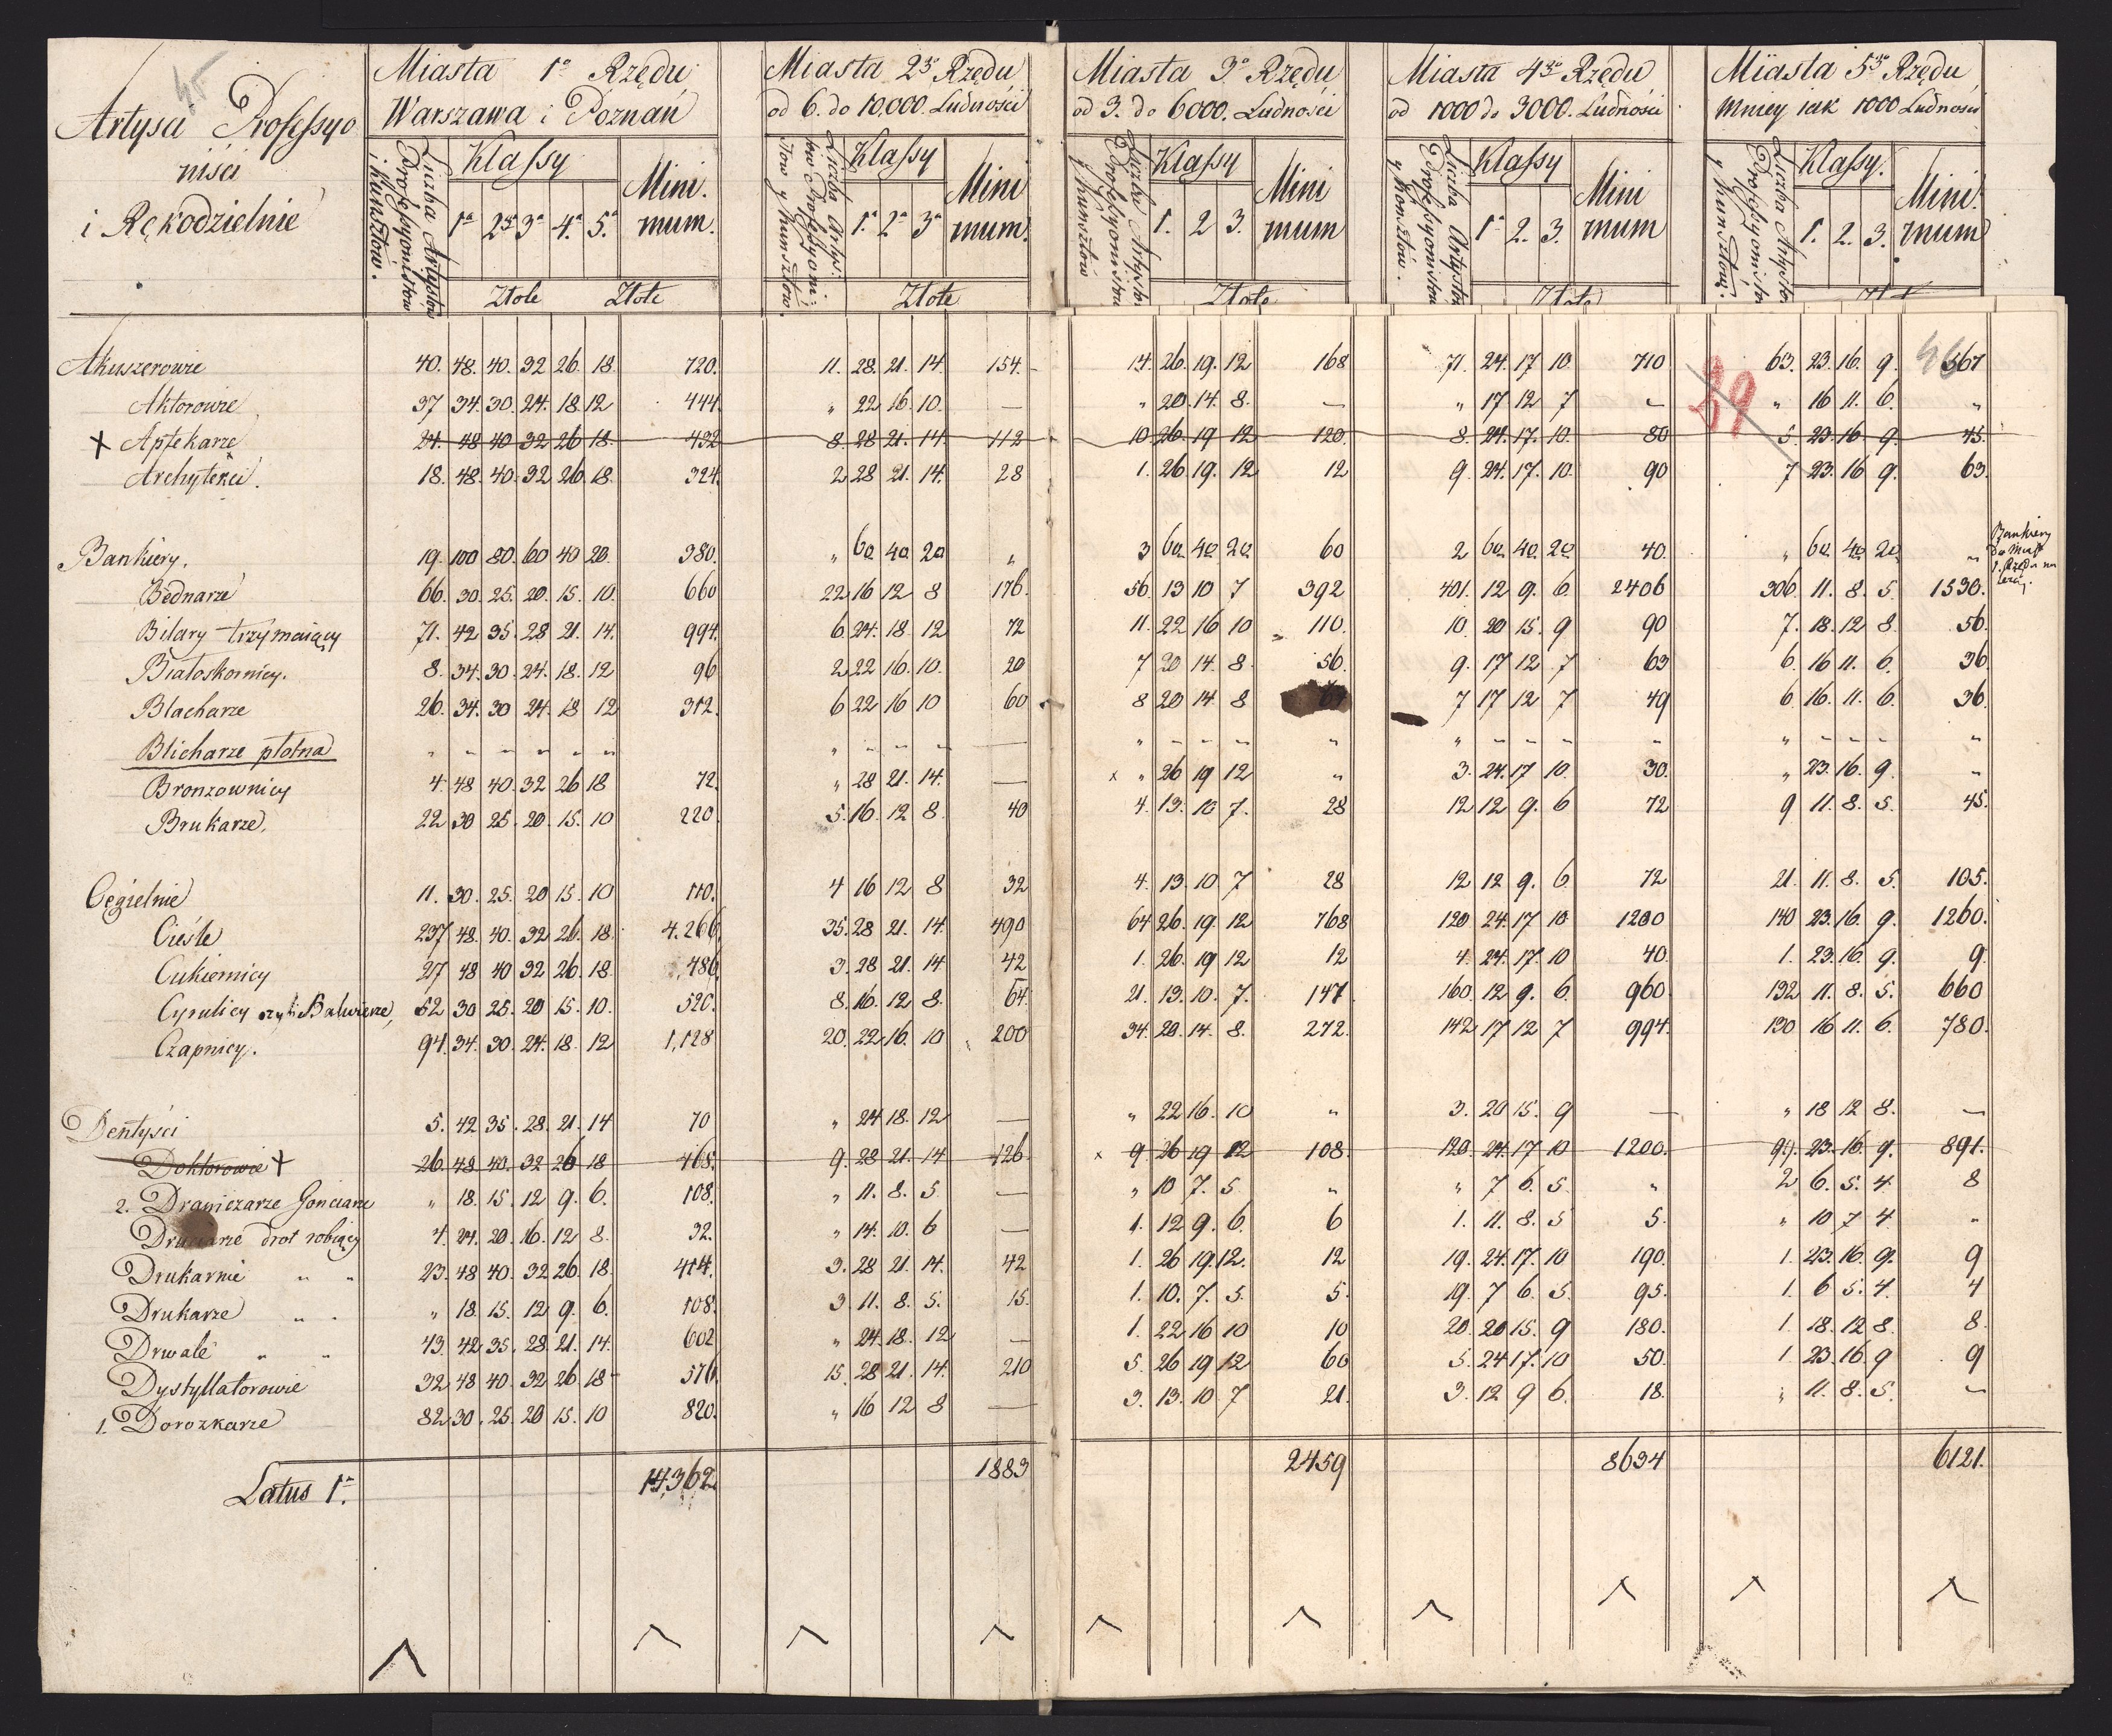 45
Artysci Professyo
niści
i Rękodzielnie
Miasta 1º Rzędu
Warszawa i Poznań
Liczba Artystow
Professyonistow
i Kunsztów.
Klassy
1ª 2ga 3ª 4ª 5ª
Mini.
mum.
Złote Złote
Miasta 2go Rzędu
od 6. do 10,000. Ludności
Liczba Artys:
tow Professyoni:
stow y Kunsztow.
Klassy
1ª 2ª 3ª
Mini
mum.
Złote
Miasta 3º Rzędu
od 3. do 6000. Ludności
Liczba Artystow
Professyonistow
y Kunsztów
Klassy
1. 2 3.
Mini
mum
Złote
Miasta 4go Rzędu
od 1000 do 3000. Ludności
Liczba Artystow
Professyonistow
y Konsztów.
Klassy
1ª 2. 3.
Mini
mum
Złote
Miasta 5go Rzędu
mniey iak 1000 Ludności
Liczba Artystow
Professyonistow
y Kunsztow.
Klassy.
1. 2. 3.
Mini.
mum
46
39
Akuszerowie 40. 48. 40. 32 26. 18. 720. 11. 28. 21. 14. 154. 14. 26. 19. 12 168 71. 24. 17 10. 710 63. 23. 16. 9. 567
Aktorowie 37 34. 30. 24. 18. 12 444. „ 22 16 10. — „ 20. 14. 8. — „ 17 12 7 — „ 16 11. 6. „
x Aptekarze 24. 48 40 32 26 18. 432 8. 28 21. 14. 112 10 26. 19 12 120. 8. 24. 17. 10. 80 5. 23. 16. 9. 45.
Archytekci. 18. 48. 40. 32 26 18. 324. 2 28 21. 14. 28 1. 26 19. 12 12 9. 24. 17. 10. 90 7 23. 16 9. 63.
Bankiery. 19. 100 80. 60 40 20. 380. „ 60 40 20 „ 3 60. 40. 20 60 2 60. 40. 20 40. „ 60. 40 20 „
Bankiery
do Miast
1. Rzędu na
leżą.
Bednarze 66. 30. 25. 20. 15. 10. 660 22 16 12 8 176. 56. 13 10 7 392 401. 12 9. 6. 2406 306. 11. 8. 5. 1530.
Bilary trzymaiący 71. 42 35. 28 21. 14. 994. 6. 24. 18. 12 72 11. 22 16 10 110. 10. 20 15. 9 90 7. 18. 12 8. 56.
Białoskornicy. 8. 34. 30. 24. 18. 12 96 2 22 16. 10. 20 7 20 14. 8. 56. 9. 17 12 7 63 6. 16 11. 6. 36
Blacharze 26. 34. 30 24. 18 12 312. 6 22 16 10 60 8 20 14 8 64 7 17 12 7 49 6. 16. 11. 6. 36.
Blicharze płotna „ „ „ „ „ „ „ „ „ „ — „ „ „ „ „ „ „ „ „ „ „ „ „ „ „
Bronzownicy 4. 48 40. 32 26 18 72. „ 28 21. 14. — x „ 26 19 12 „ 3. 24. 17 10. 30. „ 23. 16. 9. „
Brukarze. 22 30 25. 20. 15. 10 220 5. 16. 12 8. 40 4. 13. 10 7. 28 12 12 9. 6 72 9 11. 8. 5. 45.
Cegielnie 11. 30. 25. 20 15. 10 110. 4 16 12 8 32 4. 13. 10 7 28 12 12 9. 6. 72 21. 11. 8. 5. 105.
Cieśle 237 48. 40. 32 26. 18. 4.266. 35. 28 21. 14. 490 64 26. 19. 12 768 120 24. 17 10 1200 140 23. 16. 9. 1260.
Cukiernicy 27 48 40 32 26. 18. 486. 3. 28 21. 14 42 1. 26. 19 12 12 4. 24. 17. 10 40. 1. 23. 16. 9. 9.
Cyrulicy czyli Balwierze, 52 30 25. 20 15. 10. 520. 8. 16. 12 8. 64. 21. 13. 10. 7. 147 160. 12 9. 6. 960 132 11. 8. 5. 660
Czapnicy. 94. 34. 30. 24. 18. 12 1,128 20. 22 16. 10 200 34. 20. 14. 8. 272. 142 17 12 7 994. 130 16 11. 6. 780.
Dentyści 5. 42 35. 28. 21. 14 70 „ 24 18. 12 — „ 22 16. 10 „ 3. 20 15. 9 — „ 18 12 8. —
Doktorowie x 26. 48 40. 32 26 18 468. 9. 28 21. 14 126 x 9. 26 19 12 108. 120. 24. 17 10 1200. 99. 23. 16. 9. 891.
2. Draniczarze Gonciarze „ 18. 15. 12 9. 6. 108. „ 11. 8. 5. — „ 10 7. 5. „ „ 7 6. 5. „ 2 6. 5. 4. 8
Druciarze drot robiący 4. 24. 20. 16. 12 8. 32. „ 14. 10. 6 — 1. 12 9. 6. 6 1. 11. 8. 5 5. „ 10 7 4 „
Drukarnie „ „ 23. 48 40. 32 26. 18. 414. 3. 28 21. 14. 42 1. 26 19. 12. 12 19. 24. 17. 10 190. 1. 23. 16. 9. 9
Drukarze „ „ „ 18. 15. 12 9. 6. 108. 3 11. 8. 5. 15. 1. 10. 7. 5. 5. 19. 7 6. 5. 95. 1. 6 5. 4. 4
Drwale „ „ 43. 42 35. 28. 21. 14. 602 „ 24. 18. 12 — 1. 22 16 10 10 20. 20 15. 9 180. 1. 18. 12 8. 8.
Dystyllatorowie 32 48 40. 32 26 18 576. 15. 28 21. 14. 210 5. 26 19 12 60 5. 24 17. 10 50. 1. 23. 16. 9 9
1. Dorozkarze 82 30. 25. 20 15. 10 820. „ 16 12 8 — 3. 13. 10 7 21. 3. 12 9 6. 18. „ 11. 8. 5. —
Latus 1ª. 14,362. 1883 2459 8634 6121.